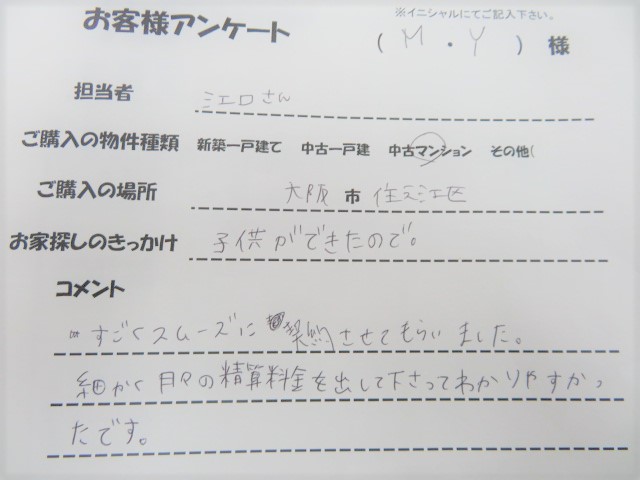 お客様アンケート
※イニシャルにてご記入下さい。
( M ・ Y ) 様
担当者 江口さん
ご購入の物件種類 新築一戸建て 中古一戸建 中古マンション その他(
ご購入の場所 大阪 市 住之江区
お家探しのきっかけ 子供ができたので。
コメント
すごくスムーズに 契約させてもらいました。
細かく月々の精算料金を出して下さってわかりやすかっ
たです。